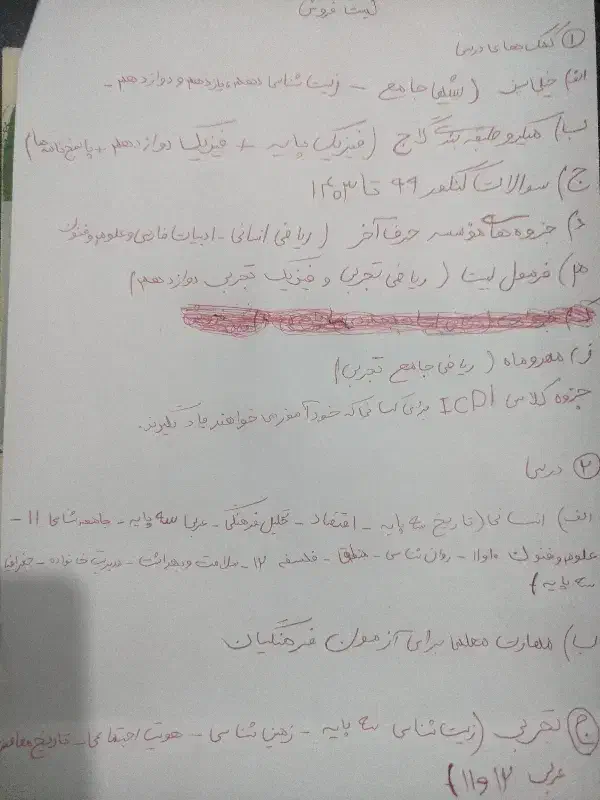 لیست فروش
① کمک های درسی
الف) خیلی سبز (شیمی جامع - زیست شناسی دهم، یازدهم و دوازدهم -
ب) میکرو طبقه بندی گاج (فیزیک پایه + فیزیک دوازدهم + پاسخ نامه ها)
ج) سوالات کنکور 99 تا ۱۴۰۳
د) جزوه های موسسه حرف آخر (ریاضی انسانی - ادبیات فارسی و علوم و فنون
ه) فرمول لیست (ریاضی تجربی و فیزیک تجربی دوازدهم)
ز) مهروماه (ریاضی جامع تجربی)
جزوه کلاس ICDL برای کسانی که خودآموز می خواهند یاد بگیرند.
② درسی
الف) انسانی (تاریخ سه پایه - اقتصاد - تحلیل فرهنگی - عربی سه پایه - جامعه شناسی 11 -
علوم و فنون ۱۰ و ۱۱ - روان شناسی - منطق - فلسفه ۱۲ - سلامت و بهداشت - مدیریت خانواده - جغرافیا
سه پایه)
ب) مهارت معلمی برای آزمون فرهنگیان
ج) تجربی (زیست شناسی سه پایه - زمین شناسی - هویت اجتماعی - تاریخ معاصر
عربی ۱۲ و ۱۱)